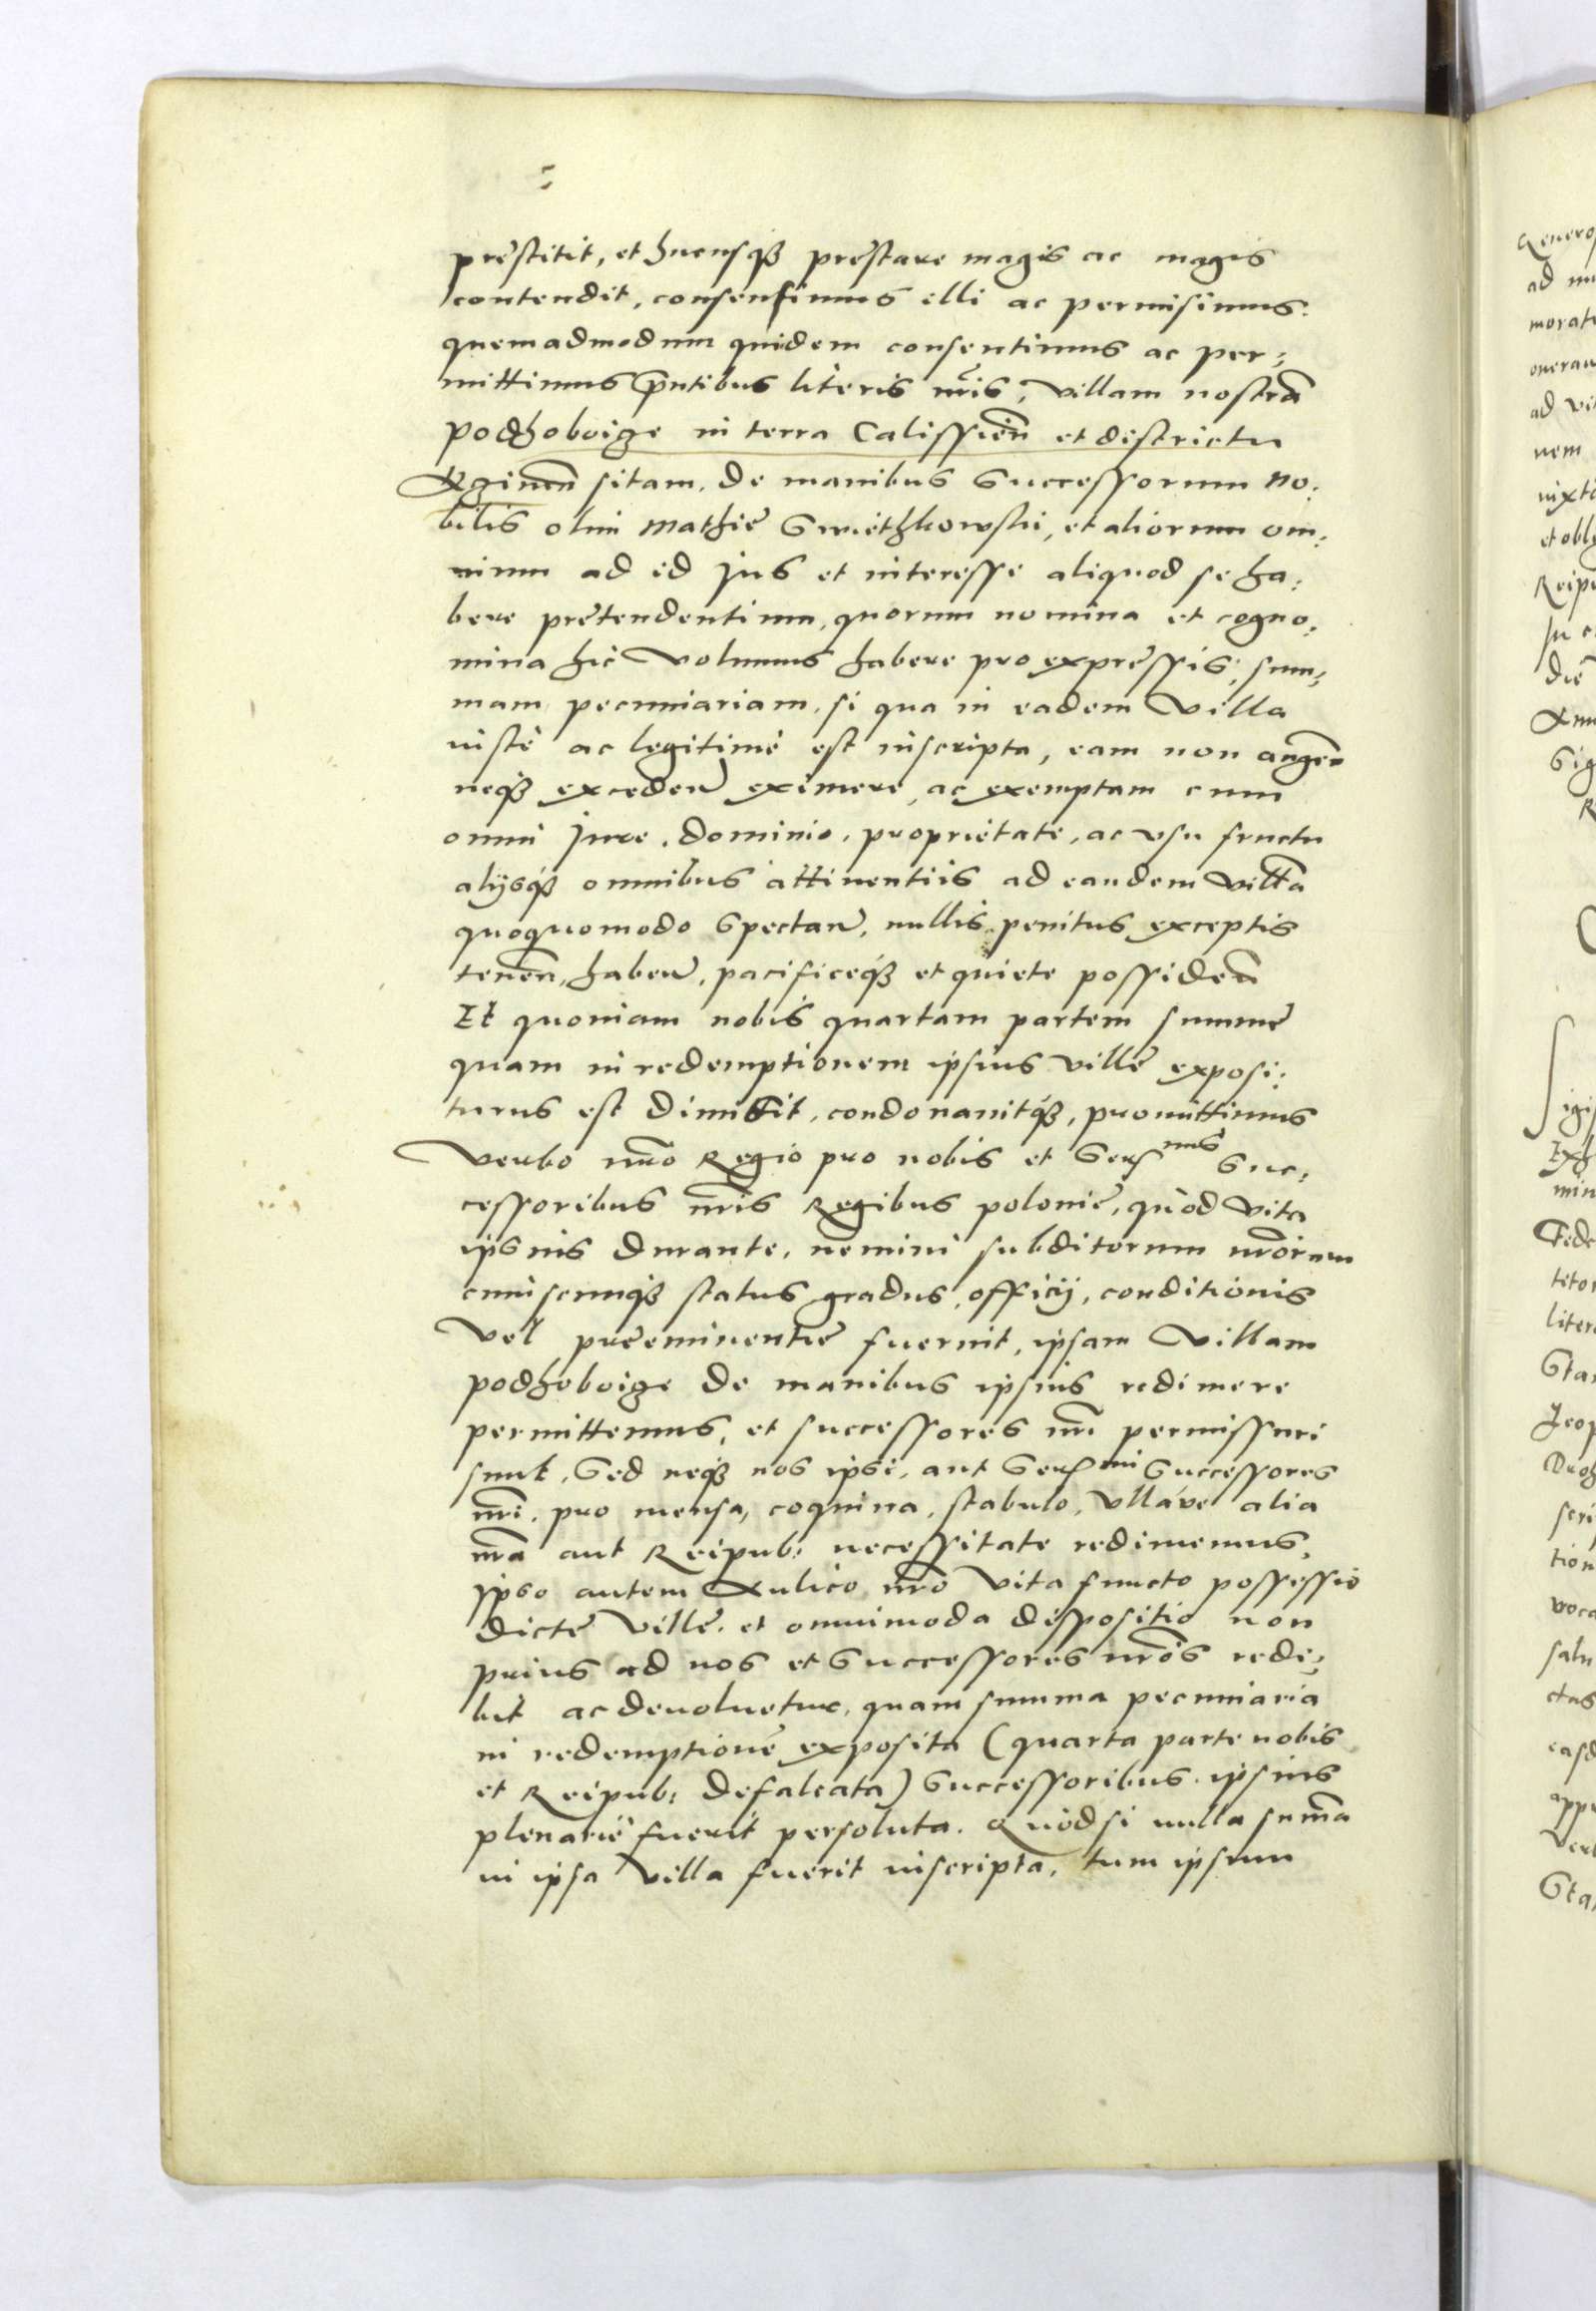 prestitit, et hucusq3 prestare magis ac magis
contendit, consensimus illi ac permisimus:
quemadmodum quidem consentimus ac per¬
mittimus pñtibus literis nr̃is, Villam nostrã
podzoboige in terra Calissieñ et districtu
sitam, De manibus Successorum no:
bilis olim Mathie et aliorum om:
nium ad id Jus et interesse aliquod se ha:
bere pretendentium, quorum nomina et cogno:
mina hic Volumus habere pro expressis, sum¬
mam pecuniariam, si qua in eadem Villa
iuste ac legitime est inscripta, eam non augeñ
neq3 exceden̄ eximere, ac exemptam cum
omni Jure, dominio, proprietate, ac vsu fructu
alijsq3 omnibus attinentiis ad eandem Villã
quoquomodo Spectan̄, nullis penitus exceptis
tenen̄, haben̄, pacificeq3 et quiete possiden̄
Et quoniam nobis quartam partem summe
quam in redemptionem ipsius Ville exposi:
turus est Dimisit, condonauitq3, promittimus
Verbo nr̃o Regio pro nobis et Ser mis Suc:
cessoribus nr̃is Regibus polonie, quod Vita
ipsius Durante, nemini subditorum nr̃orum
cuiuscunq3 status gradus, officij, conditionis
Vel preeminentie fuerint, ipsam Villam
podzoboige De manibus ipsius redimere
permittemus, et successores nr̃i permissuri
sunt, Sed neq3 nos ipsi, aut Ser mi Successores
nr̃i, pro mensa, coquina, stabulo, Vllave alia
nr̃a aut Reipub: necessitate redimemus,
ipso autem Aulico nr̃o Vita functo possessio
Dicte Ville, et omnimoda dispositio non
prius ad nos et Successores nr̃os redi¬
bit ac deuoluetur, quam summa pecuniaria
in redemptionē exposita (quarta parte nobis
et Reipub: Defalcata) Successoribus ipsius
plenarie fuerit persoluta. Quod si nulla summa
in ipsa Villa fuerit inscripta, tum ipsum